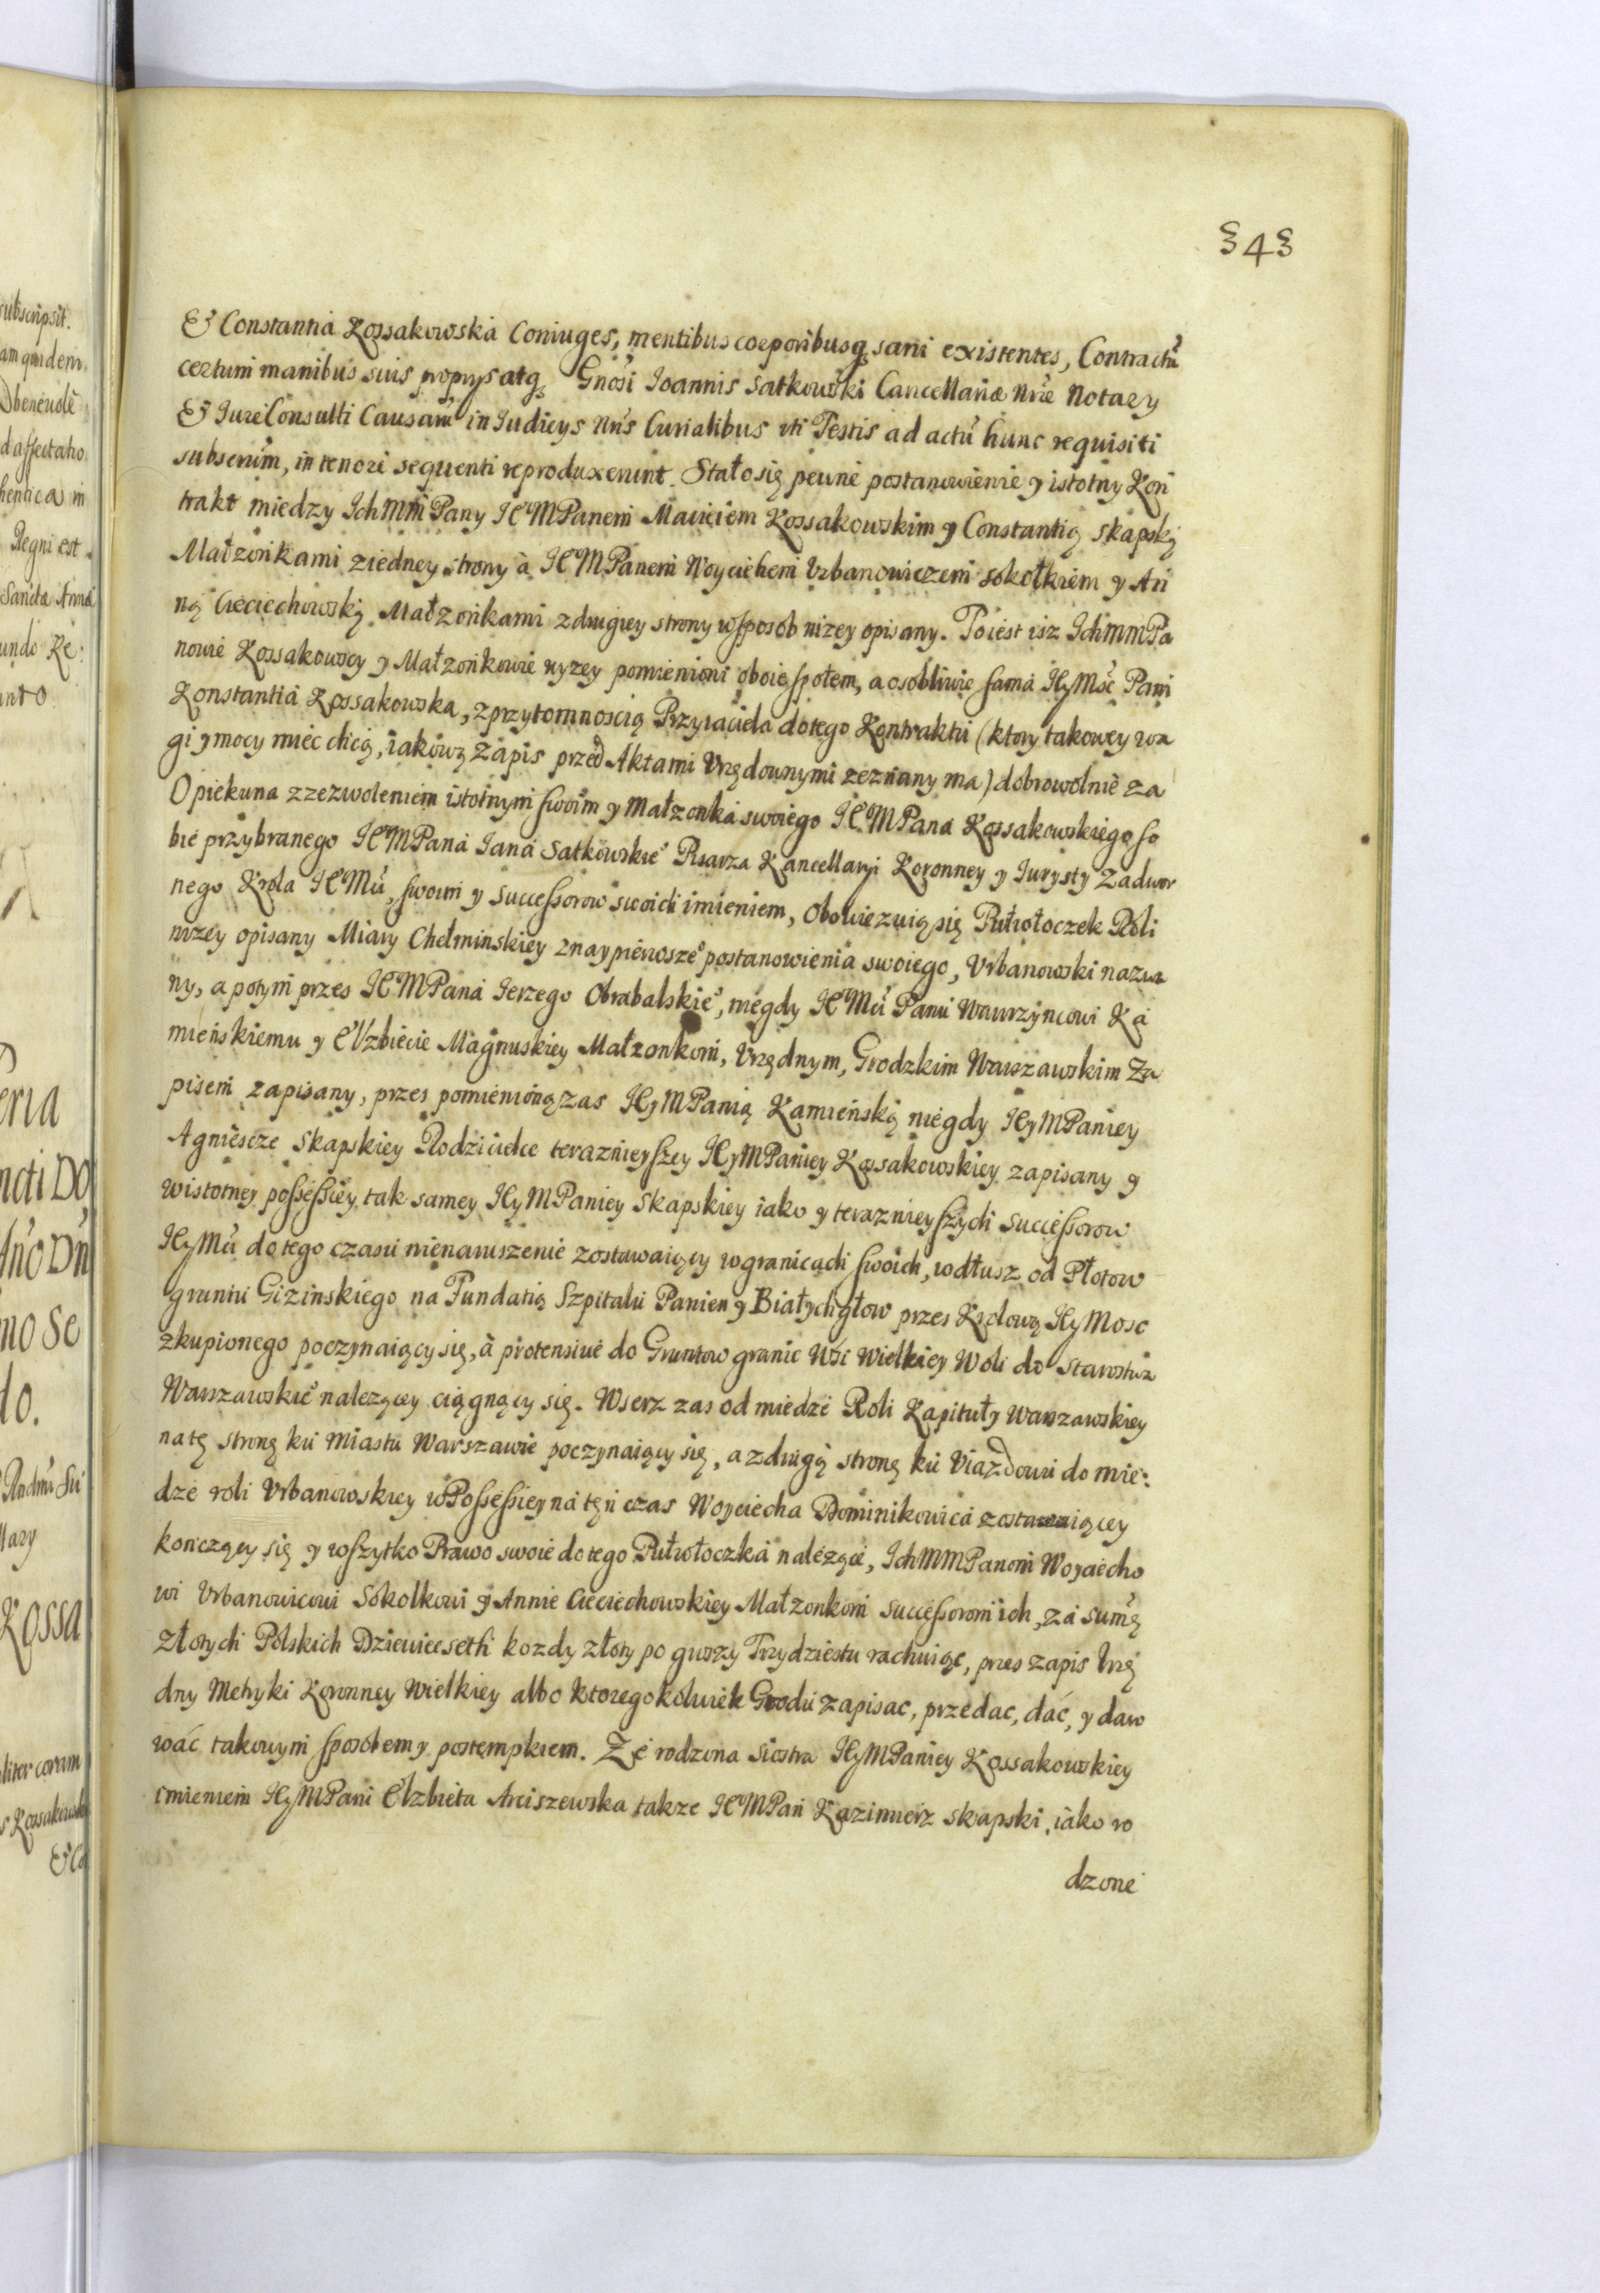 343
& Constantia Kossakowska Coniuges, mentibus corporibusq sani existentes, Contractũ
certum manibus suis proprys atq Gnosi Ioannis Satkowski Cancellariæ Nræ Notary
& Iure Consulti Causarũ in Iudicys Nris Curialibus uti Testis ad actũ hunc requisiti
subscrim, in tenori sequenti reproduxerunt. Stało się pewne postanowienie y istotny Kon
trakt miedzy Ich Mm Pany IE M Panem Maciciem Kossakowskim y Constantią Skapską
Małzonkami ziedney strony à IE M Panem Woyciehem Urbanowiczem Sokołkiem y An
ną Cieciechowską Małzonkami zdrugiey strony w sposob nizey opisany. To iest isz Ich mm Pa
nowie Kossakowscy y Małzonkowie wyzey pomienioni oboie społem, a osobliwie sama IEy Mść Pani
Konstantia Kossakowska, z przytomnoscią Przyiaciela do tego Kontraktu (ktory takowey wa
gi y mocy miec chcą, iakową zapis przed Aktami Urzędownymi zeznany ma) dobrowolnie za
Opiekuna z zezwoleniem istotnym swoim y Małzonka swoiego IE M Pana Kossakowskiego so
bie przybranego IE M Pana Iana Satkowskieº Pisarza Kancellaryi Koronney y Iurysty Zadwor
nego Krola IE Mu, swoim y Successorow swoich imieniem, obowiezuią się Pułwołoczek Roli
nizey opisany Miary Chełminskiey z naypierwszeº postanowienia swoiego, Urbanowski nazwa
ny, a potym przes IE M Pana Ierzego Obrabalskieº, niegdy IE Mu Panu Wawrzyncowi Ka
mieńskiemu y Elzbiecie Magnuskiey Małzonkom, Urzędnym, Grodzkim Warszawskim Za
pisem zapisany, przes pomienioną zas IEy M Panią Kamieńską niegdy IEy M Paniey
Agniescze Skapskiey Rodzicielce teraznieyszey IEy M Paniey Kossakowskiey zapisany y
w istotney possessiey tak samey IEy M Paniey Skapskiey iako y teraznieyszych Successorow
IEy Mu do tego czasu nienaruszenie zostawaiący w granicach swoich, wdłusz od Płotow
gruntu Gizinskiego na Fundatią Szpitalu Panien y Białychgłow przes Krolową IEy Mosc
zkupionego poczynaiący się, à protensive do Gruntow granic Wsi Wielkiey Woli do Starostwa
Warszawskieº nalezącey ciągnący się. Wserz zas od miedze Roli Kapituły Warszawskiey
na tę stronę ku Miastu Warszawie poczynaiący się, a z drugą stronę ku Uiazdowi do mie:
dze roli Urbanowskiey w Possessiey na ten czas Woyciecha Dominikowica zostawaiącey
konczący się y wszytko Prawo swoie do tego Pułwołoczka nalezące, Ich MM Panom Woyciecho
wi Urbanowicowi Sokolkowi y Annie Cieciechowskiey Małzonkom Successorom ich, za summę
złotych Polskich Dziewiecseth kozdy złoty po groszy Trzydziestu rachuiąc, przes zapis Urzę
dny Metryki Koronney Wielkiey albo ktoregokolwiek Grodu zapisac, przedac, dać, y daro
wać takowym sposobem y postempkiem. Ze rodzona siostra IEy M Paniey Kossakowskiey
imieniem IEy M Pani Elzbieta Arciszewska takze IE M Pan Kazimierz Skapski, iako ro
dzone